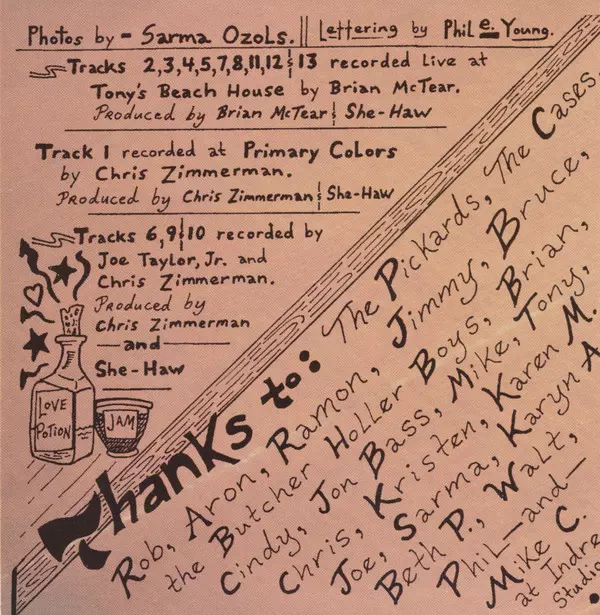 Photos by - Sarma Ozols. || Lettering by Phil e. Young.
Tracks 2,3,4,5,7,8,11,12 & 13 recorded live at
Tony's Beach House by Brian McTear.
Produced by Brian McTear & She-Haw
Track 1 recorded at Primary Colors
by Chris Zimmerman.
Produced by Chris Zimmerman & She-Haw
Tracks 6,9 & 10 recorded by
Joe Taylor, Jr. and
Chris Zimmerman.
Produced by
Chris Zimmerman
—and—
She-Haw
LOVE
POTION
JAM
Thanks to: The Pickards, The Cases,
Rob, Aron, Ramon, Jimmy, Bruce,
the Butcher Holler Boys, Brian,
Cindy, Jon Bass, Mike, Tony,
Chris, Kristen, Karen M.
Joe, Sarma, Karyn A
Beth P., Walt,
Phil —and—
Mike C.
at Indre
Studio